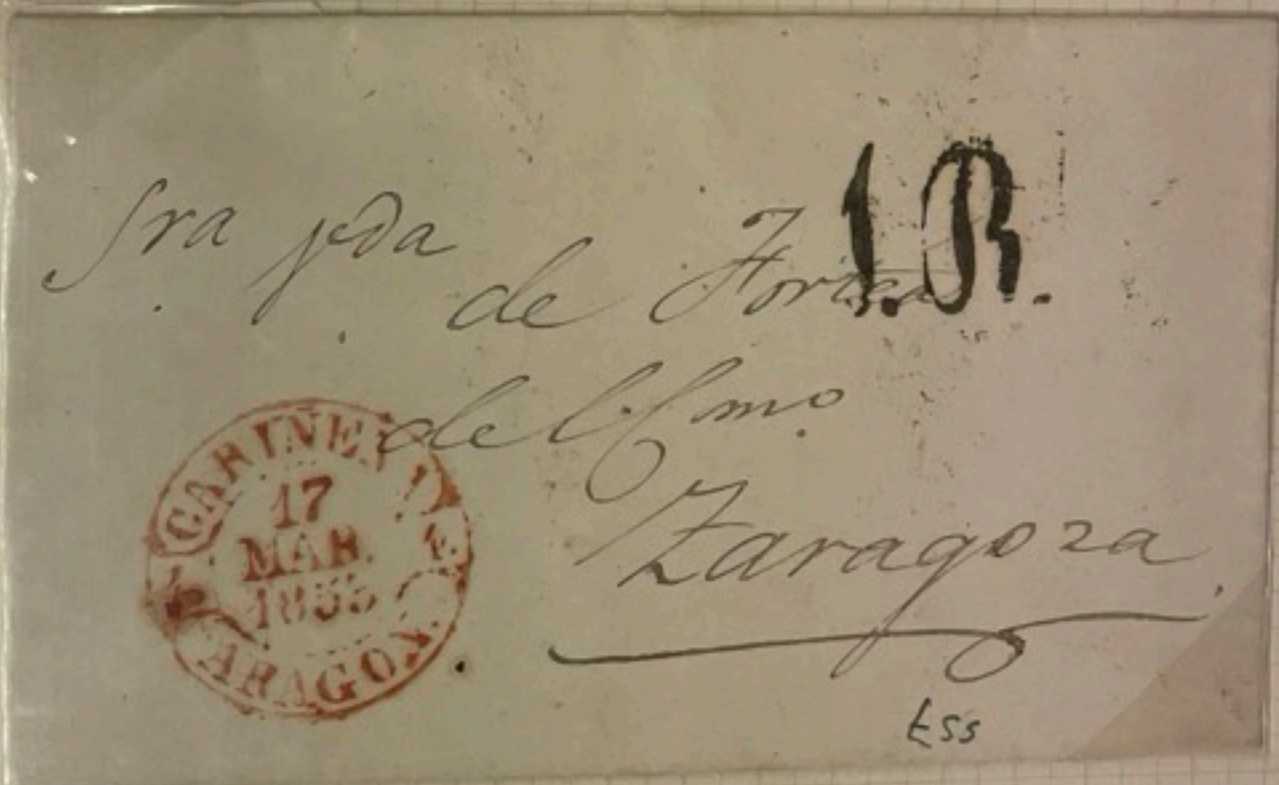 Sra vda
de Fortea
1.R.
del Como
Zaragoza
CARIÑENA
17
MAR.
1855
ARAGON.
Ess